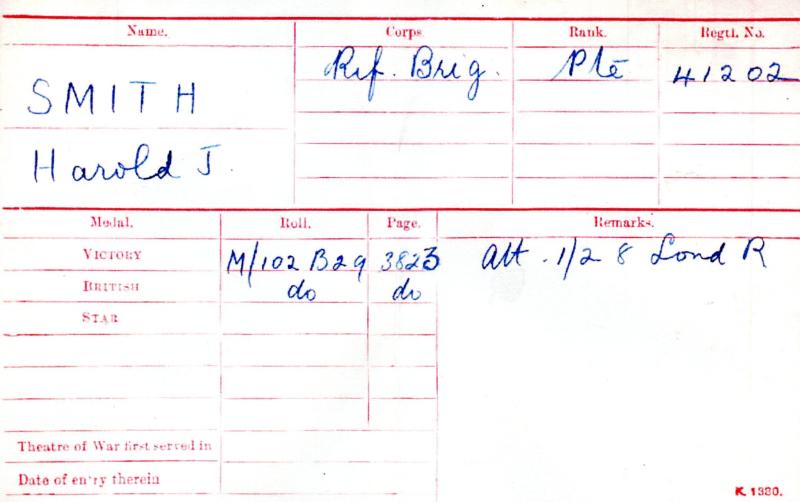 Name. Corps Rank. Regtl. No.
SMITH Rif. Brig. Pte 41202
Harold J.
Medal. Roll. Page. Remarks.
VICTORY M/102 B29 3823 Att. 1/28 Lond R
BRITISH do do
STAR
Theatre of War first served in
Date of entry therein
K 1380.